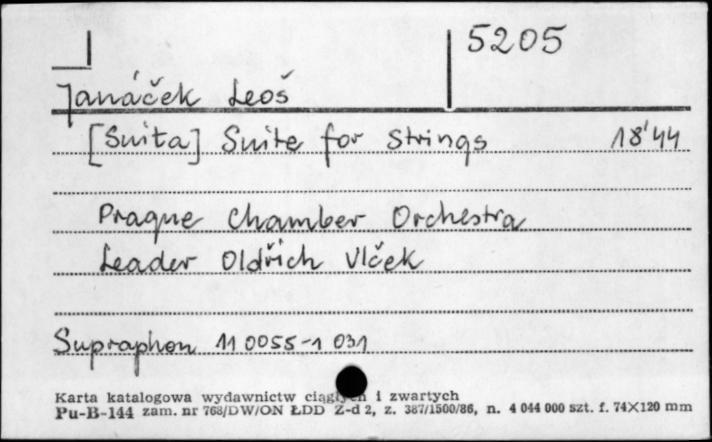 5205
Janáček Leoš
[Suita] Suite for Strings 18'44
Prague Chamber Orchestra
Leader Oldřich Vlček
Supraphon 11 0055-1 031
Karta katalogowa wydawnictw ciągłych i zwartych
Pu-B-144 zam. nr 768/DW/ON ŁDD Z-d 2, z. 387/1500/86, n. 4 044 000 szt. f. 74X120 mm